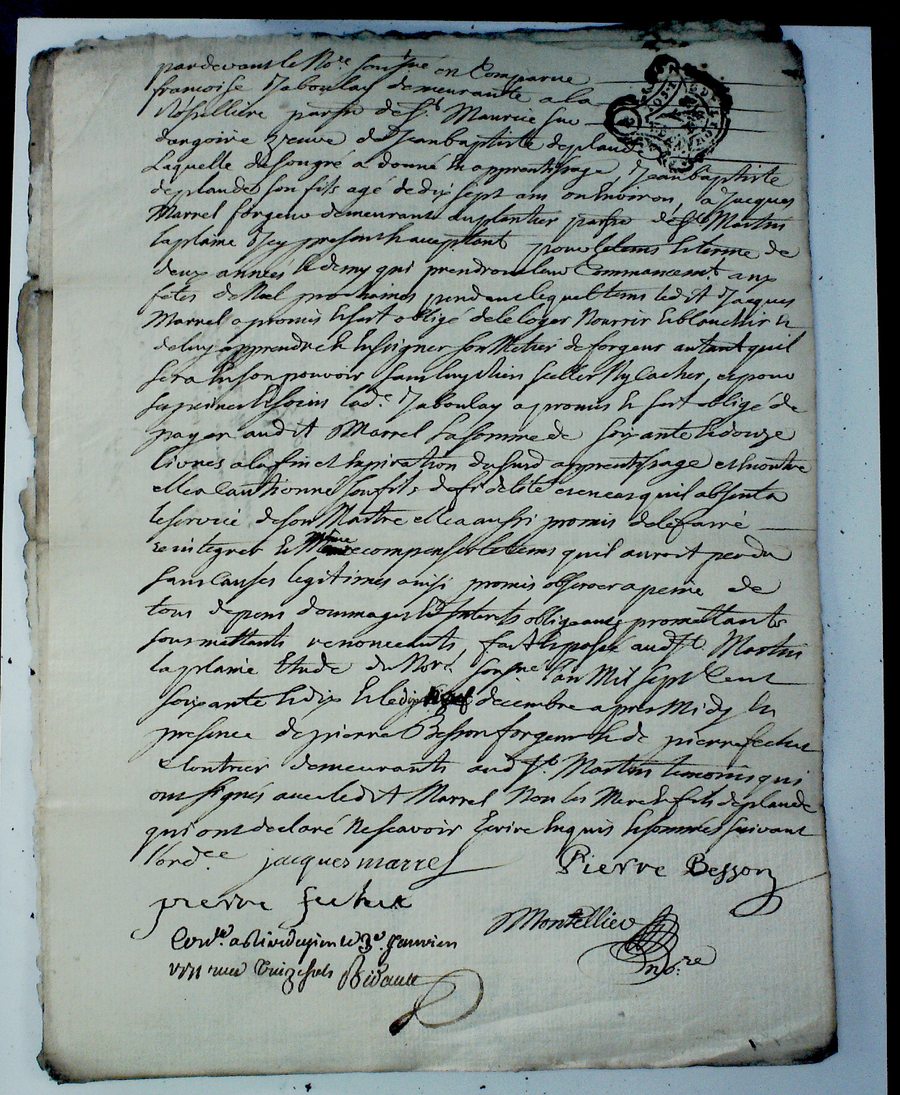 pardevant le No.re Sous.né en Comparue
françoise Jaboulay demeurante a la
Rosilliere par.sse de S.t Maurice sur
dargoire veuve de Jeanbaptiste deplaude
Laquelle de son gré a donné En apprentissage, Jeanbaptiste
deplaude son fils agé de dix sept ans ou Environ, a Jacques
Marrel forgeur demeurant du plantier par.sse de S.t Martin
la plaine Icy present & acceptant pour le tems & terme de
deux années & demy qui prendront leur Commancem.t aux
fêtes de Noel prochaines, pendant lequel tems ledit Jacques
Marrel a promis & s'est obligé de le loger Nourrir & blanchir &
de luy apprendre & Enseigner son Metier de forgeur autant quil
sera En son pouvoir sans luy Rien Celler Ny Cacher, et pour
ses peines & soins lad.e Jaboulay a promis & s'est obligé de
payer audit Marrel La somme de soixante & douze
livres a la fin et Expiration dusurd apprentissage et En outre
elle a Cautionné son fils de fidelité et en cas quil absenta
le service de son Maître elle a aussi promis de le faire
reintegrer & Même recompenser le tems quil auroit perdu
sans causes legitimes ainsi promis observer a peine de
tous depens doumages & Interets obligeants, promettants
soumettants renoncants, fait & passé aud.t S.t Martin
la plaine Etude du No.re sous.né l'an Mil sept Cent
soixante & dix & le dix decembre apres Midy En
presence de pierre Besson forgeur & de pierre fechet
Cloutrier demeurants aud S.t Martin temoins qui
ont signés avec ledit Marrel Non les Mere & fils deplaude
qui ont declaré Ne scavoir Ecrire Enquis & sommés suivant
l'ord.ce jacques marrel Pierre Besson
pierre fechet
Montellier
No.re
Con.lé a Rivedegier le 3.e Janvier
1771 recu Treize sols Bidault